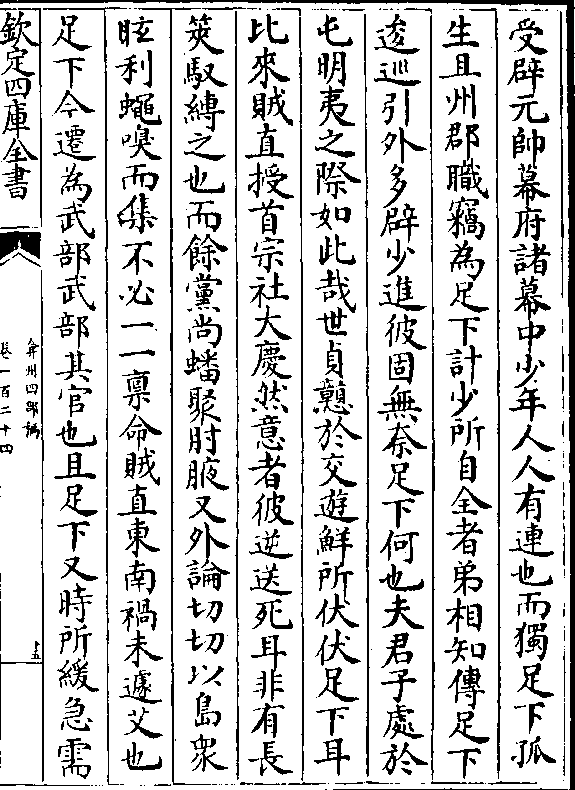 受辟元帥幕府諸幕中少年人人有連也而獨足下孤
生且州郡職竊為足下計少所自全者弟相知傳足下
逡巡引外多辟少進彼固無奈足下何也夫君子處於
屯明夷之際如此哉世貞戇於交遊鮮所伏伏足下耳
比來賊直授首宗社大慶然意者彼逆送死耳非有長
筴馭縛之也而餘黨尚蟠聚肘腋又外論切切以島衆
眩利蠅嗅而集不必一一禀命賊直東南禍未遽艾也
足下今遷為武部武部其官也且足下又時所緩急需
欽定四庫全書
弇州四部稿
卷一百二十四
十五